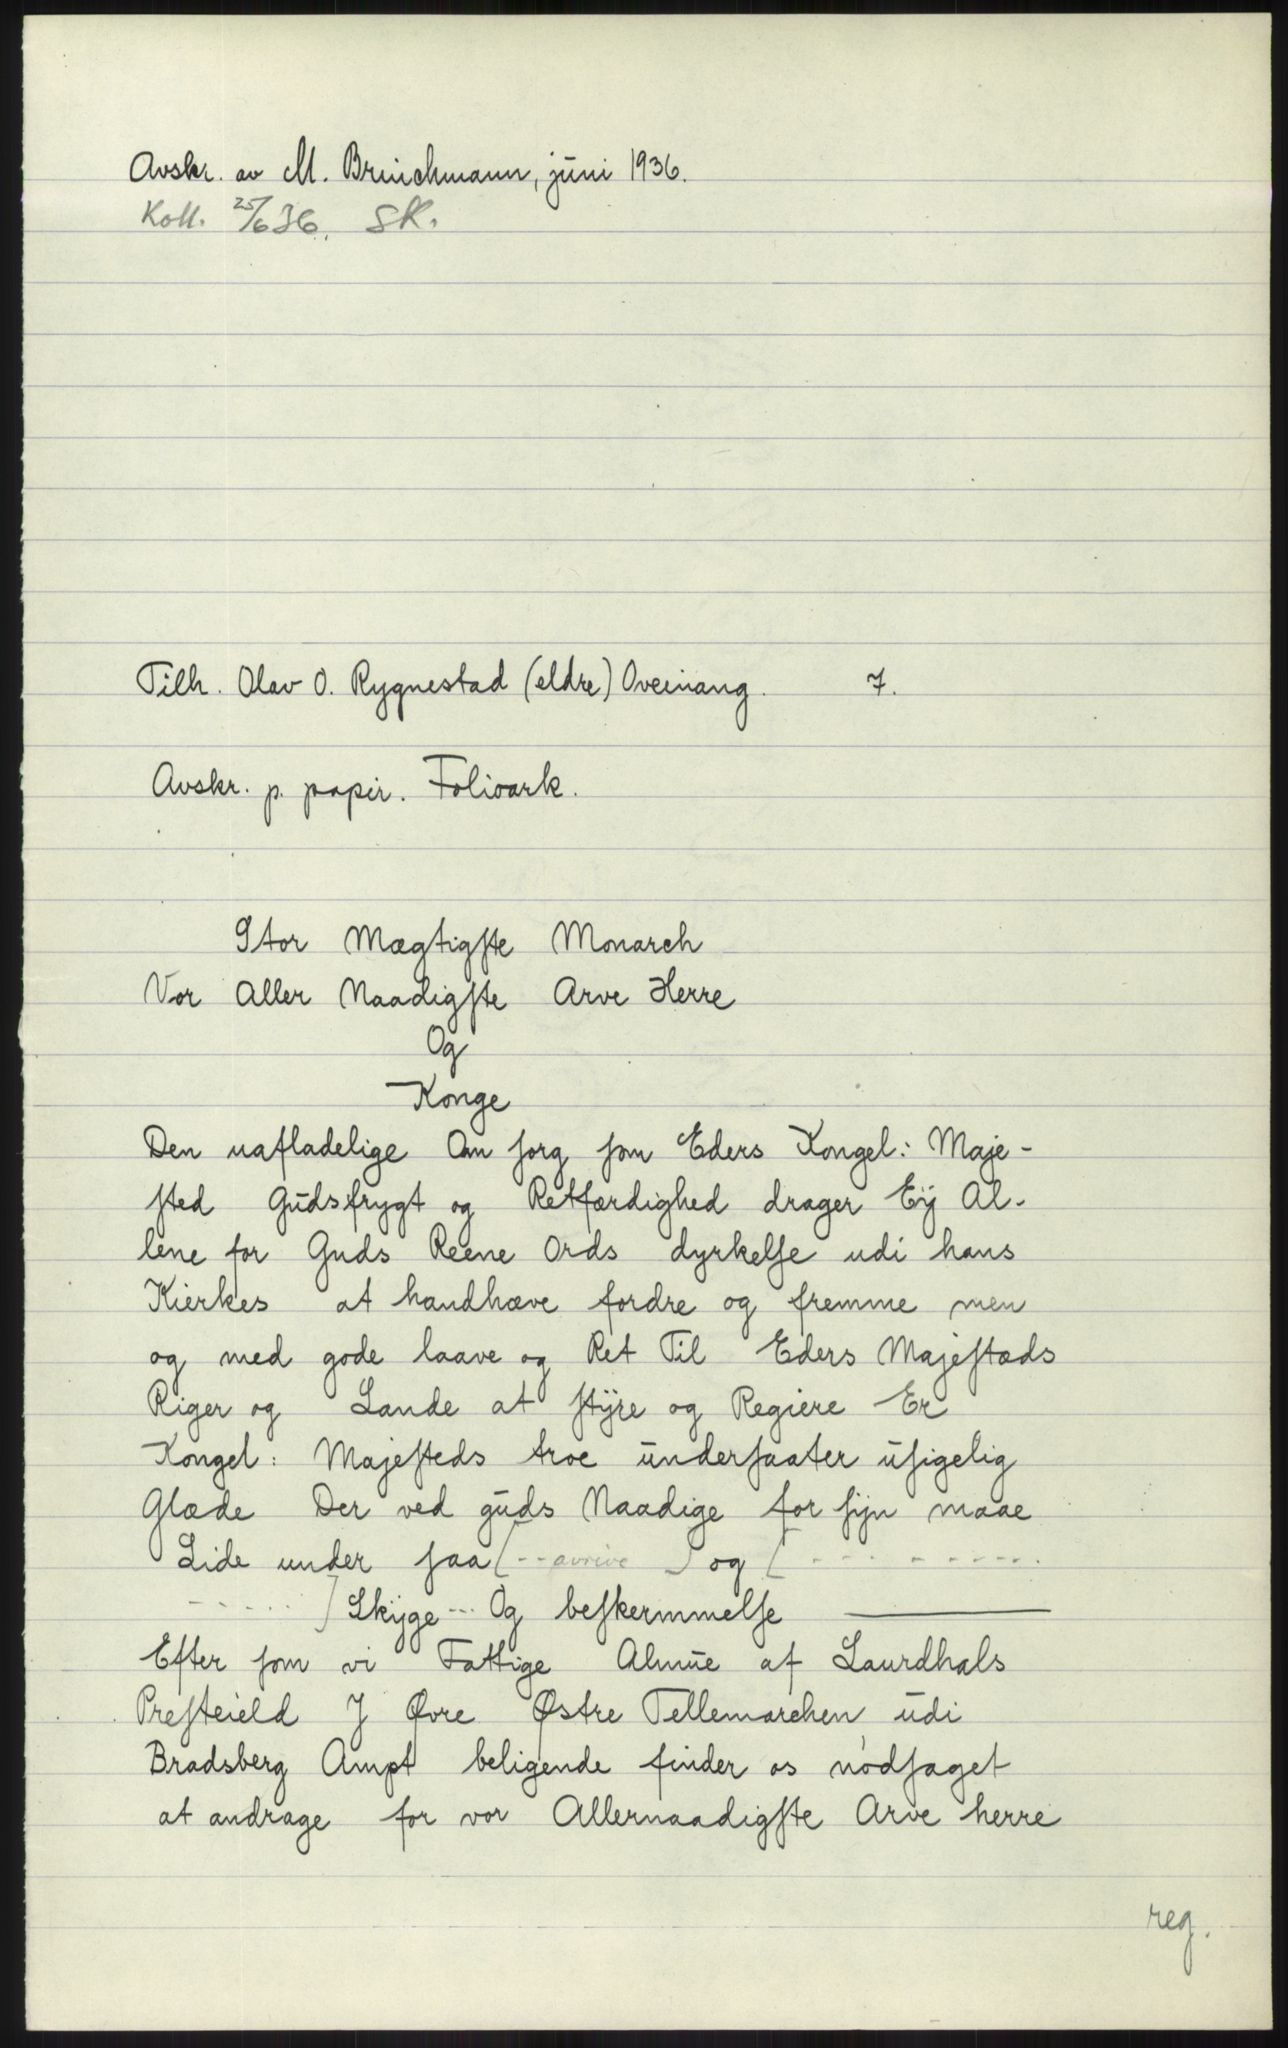 Avskr. av M. Brinchmann, juni 1936.
Koll. 25/6 36. SK.
Tilh. Olav O. Rygnestad (eldre) Oveinang. 7.
Avskr. p. papir. Folioark.
Stor Mægtigſte Monarch
Vor Aller Naadigſte Arve Herre
Og
Konge
Den uafladelige Om ſorg ſom Eders Kongel: Maje-
ſted Gudsfrygt og Retfærdighed drager Eÿ Al-
lene for Guds Reene Ords dyrkelſe udi hans
Kierkes at handhæve fordre og fremme men
og med gode laave og Ret Til Eders Majeſtæds
Riger og Lande at ſtÿre og Regiere Er
Kongel: Majeſteds troe underſaater uſigelig
Glæde Der ved guds Naadige for ſÿn maae
Lide under ſaa [-- avrive ] og [- - - - - - - - -
- - - - - ] Skÿge --- Og beſkermmelſe ———
Efter ſom vi Fattige Almue af Laurdhals
Preſteield J Øvre Østre Tellemarchen udi
Bradsberg Ampt beligende finder os nødſaget
at andrage for vor Allernaadigſte Arve herre
reg.